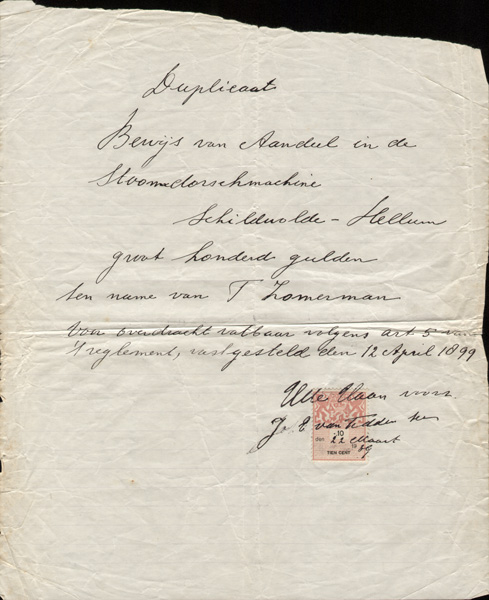 Duplicaat
Bewijs van Aandeel in de
Stoomdorschmachine
Schildwolde - Hellum
groot honderd gulden
ten name van T Zomerman
Voor overdracht vatbaar volgens art 5 van
't reglement, vastgesteld den 12 April 1899
voorz
J. E van Tidden
10
den 22 Maart
TIEN CENT